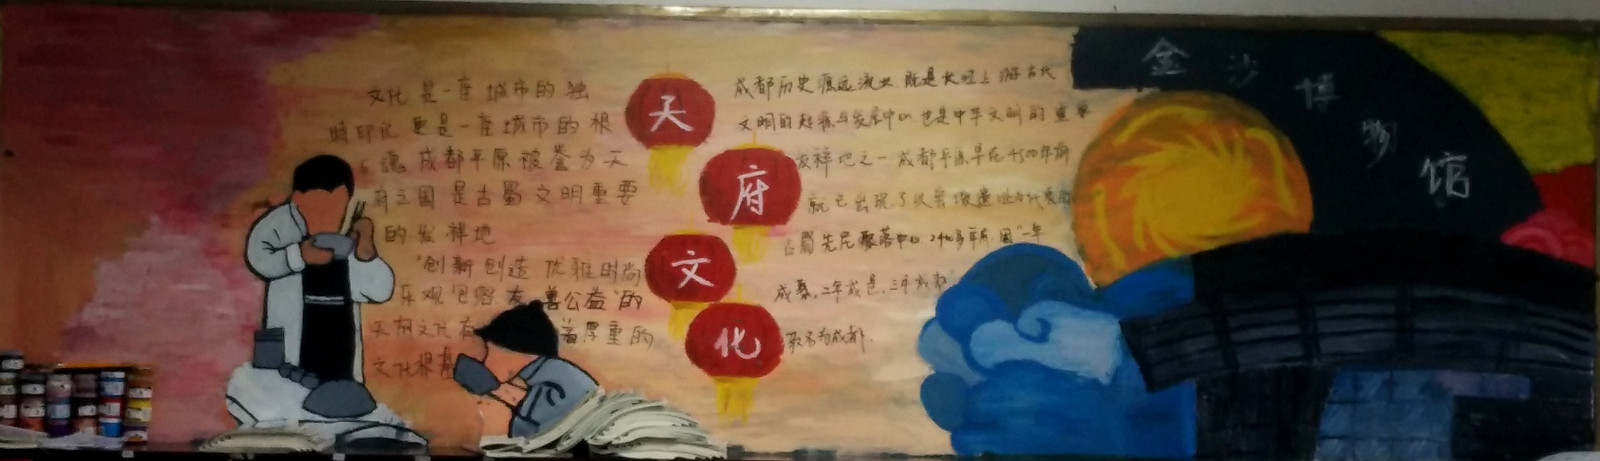 文化是一座城市的独
特印记更是一座城市的根
与魂 成都平原被誉为天
府之国是古蜀文明重要
的发祥地
"创新创造 优雅时尚
乐观包容 友善公益"的
天府文化有着厚重的
文化根基
天
府
文
化
成都历史源远流长 既是长江上游古代
文明的起源与发展中心 也是中华文明的重要
发祥地之一 成都平原早在4500年前
就已出现了以宝墩遗址为代表的
古蜀先民聚落中心 2400多年前 因"一年
成聚,二年成邑,三年成都"
故名为成都.
金沙博物馆